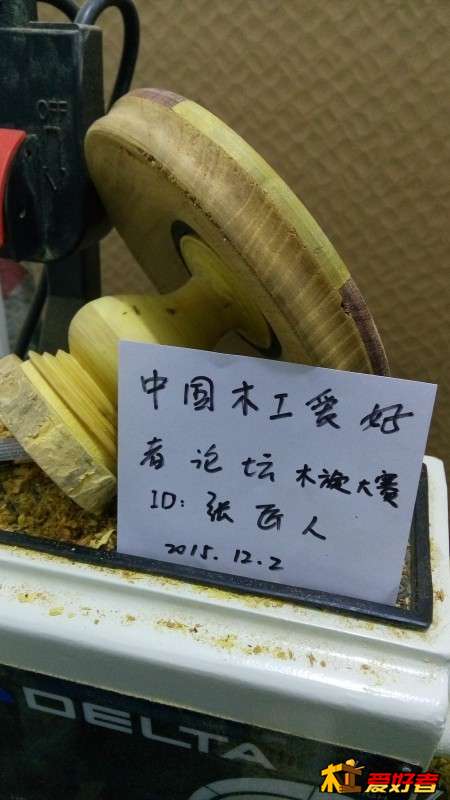 中国木工爱好
者论坛木旋大赛
ID: 张匠人
2015.12.2
DELTA
木工爱好者